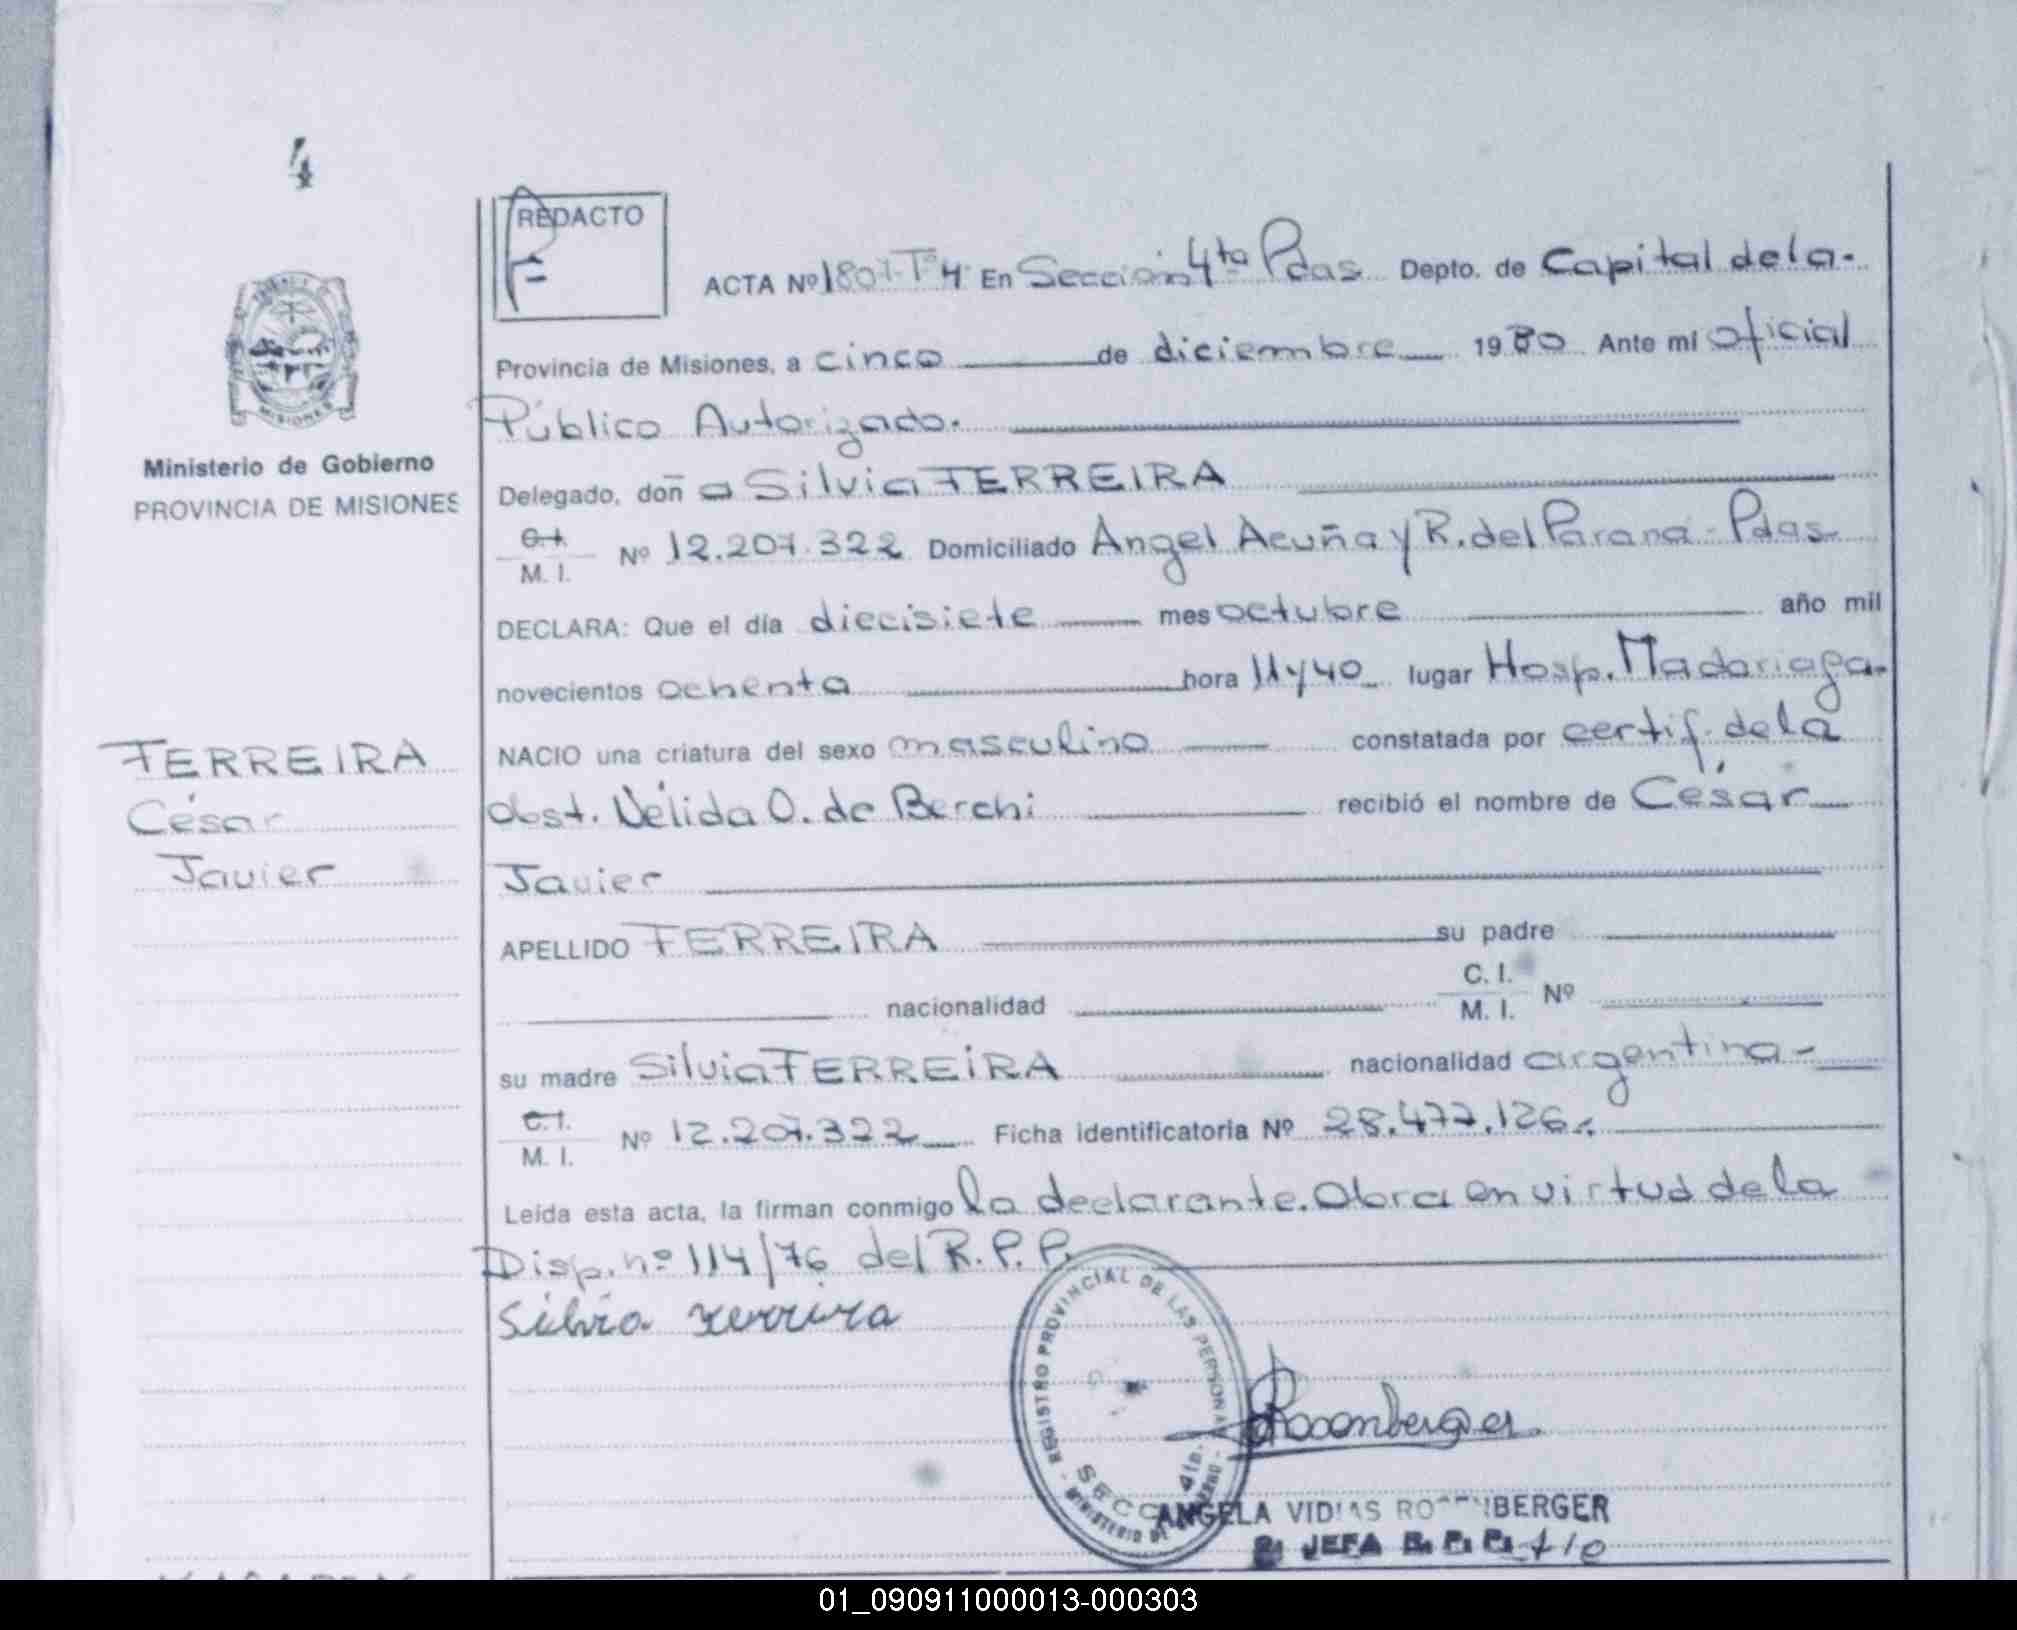 4
REDACTO
ACTA Nº 1807-Tº4 En Sección 4ta Pdas. Depto. de Capital de la-
Provincia de Misiones, a cinco de diciembre 1980 Ante mí oficial
Público Autorizado.
Ministerio de Gobierno
PROVINCIA DE MISIONES
Delegado, doña Silvia FERREIRA
C.I. M. I. Nº 12.207.322 Domiciliado Angel Acuña y R. del Paraná - Pdas.
DECLARA: Que el día diecisiete mes octubre año mil
novecientos ochenta hora 11 y 40 lugar Hosp. Madariaga.
NACIO una criatura del sexo masculino constatada por certif. de la
obst. Nélida O. de Berchi recibió el nombre de César
Javier
FERREIRA
César
Javier
APELLIDO FERREIRA su padre
nacionalidad C. I. M. I. Nº
su madre Silvia FERREIRA nacionalidad argentina-
C.I. M. I. Nº 12.207.322 Ficha identificatoria Nº 28.477.126.
Leída esta acta, la firman conmigo la declarante. Obra en virtud de la
Disp. nº 114/76 del R.P.P.
Silvia Ferreira
REGISTRO PROVINCIAL DE LAS PERSONAS
SECC. 4ta.
MINISTERIO DE
ANGELA
BERGER
JEFA
01_090911000013-000303